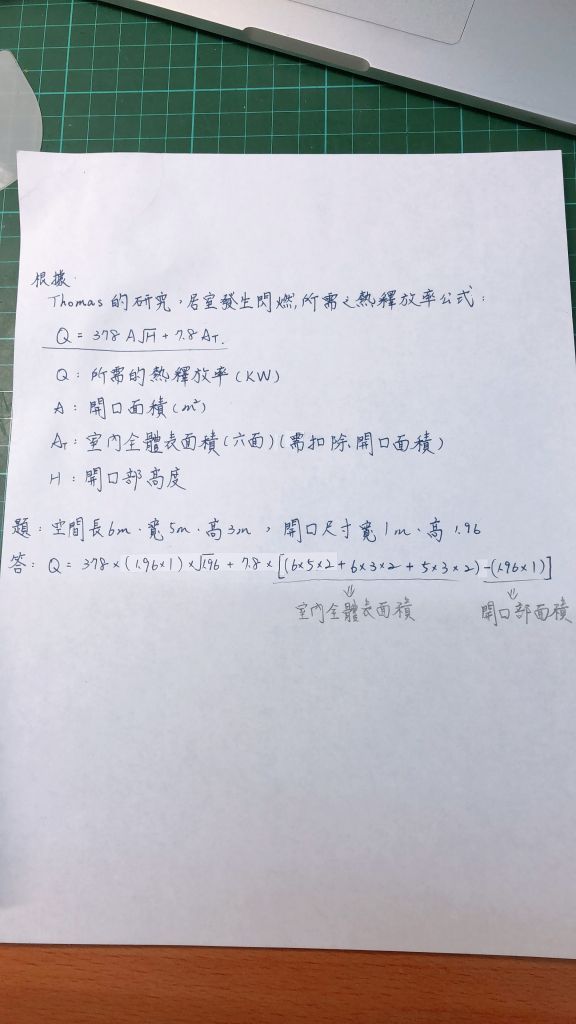 根據.
Thomas 的研究，居室發生閃燃，所需之熱釋放率公式：
Q = 378 A√H + 7.8 AT.
Q：所需的熱釋放率(KW)
A：開口面積(m²)
AT：室內全體表面積(六面)(需扣除開口面積)
H：開口部高度
題：空間長6m、寬5m、高3m，開口尺寸寬1m、高1.96
答：Q = 378×(1.96×1)×√1.96 + 7.8×[(6×5×2+6×3×2+5×3×2)-(1.96×1)]
室內全體表面積 開口部面積